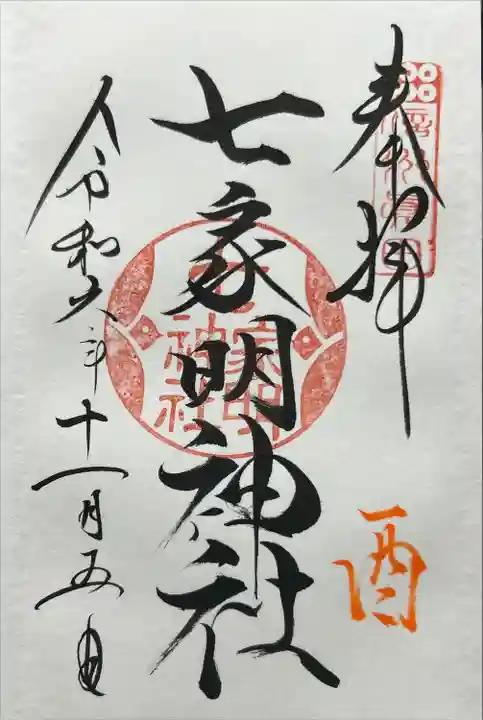 奉拝
酉
七家明神社
七家明神社
令和六年十一月五日